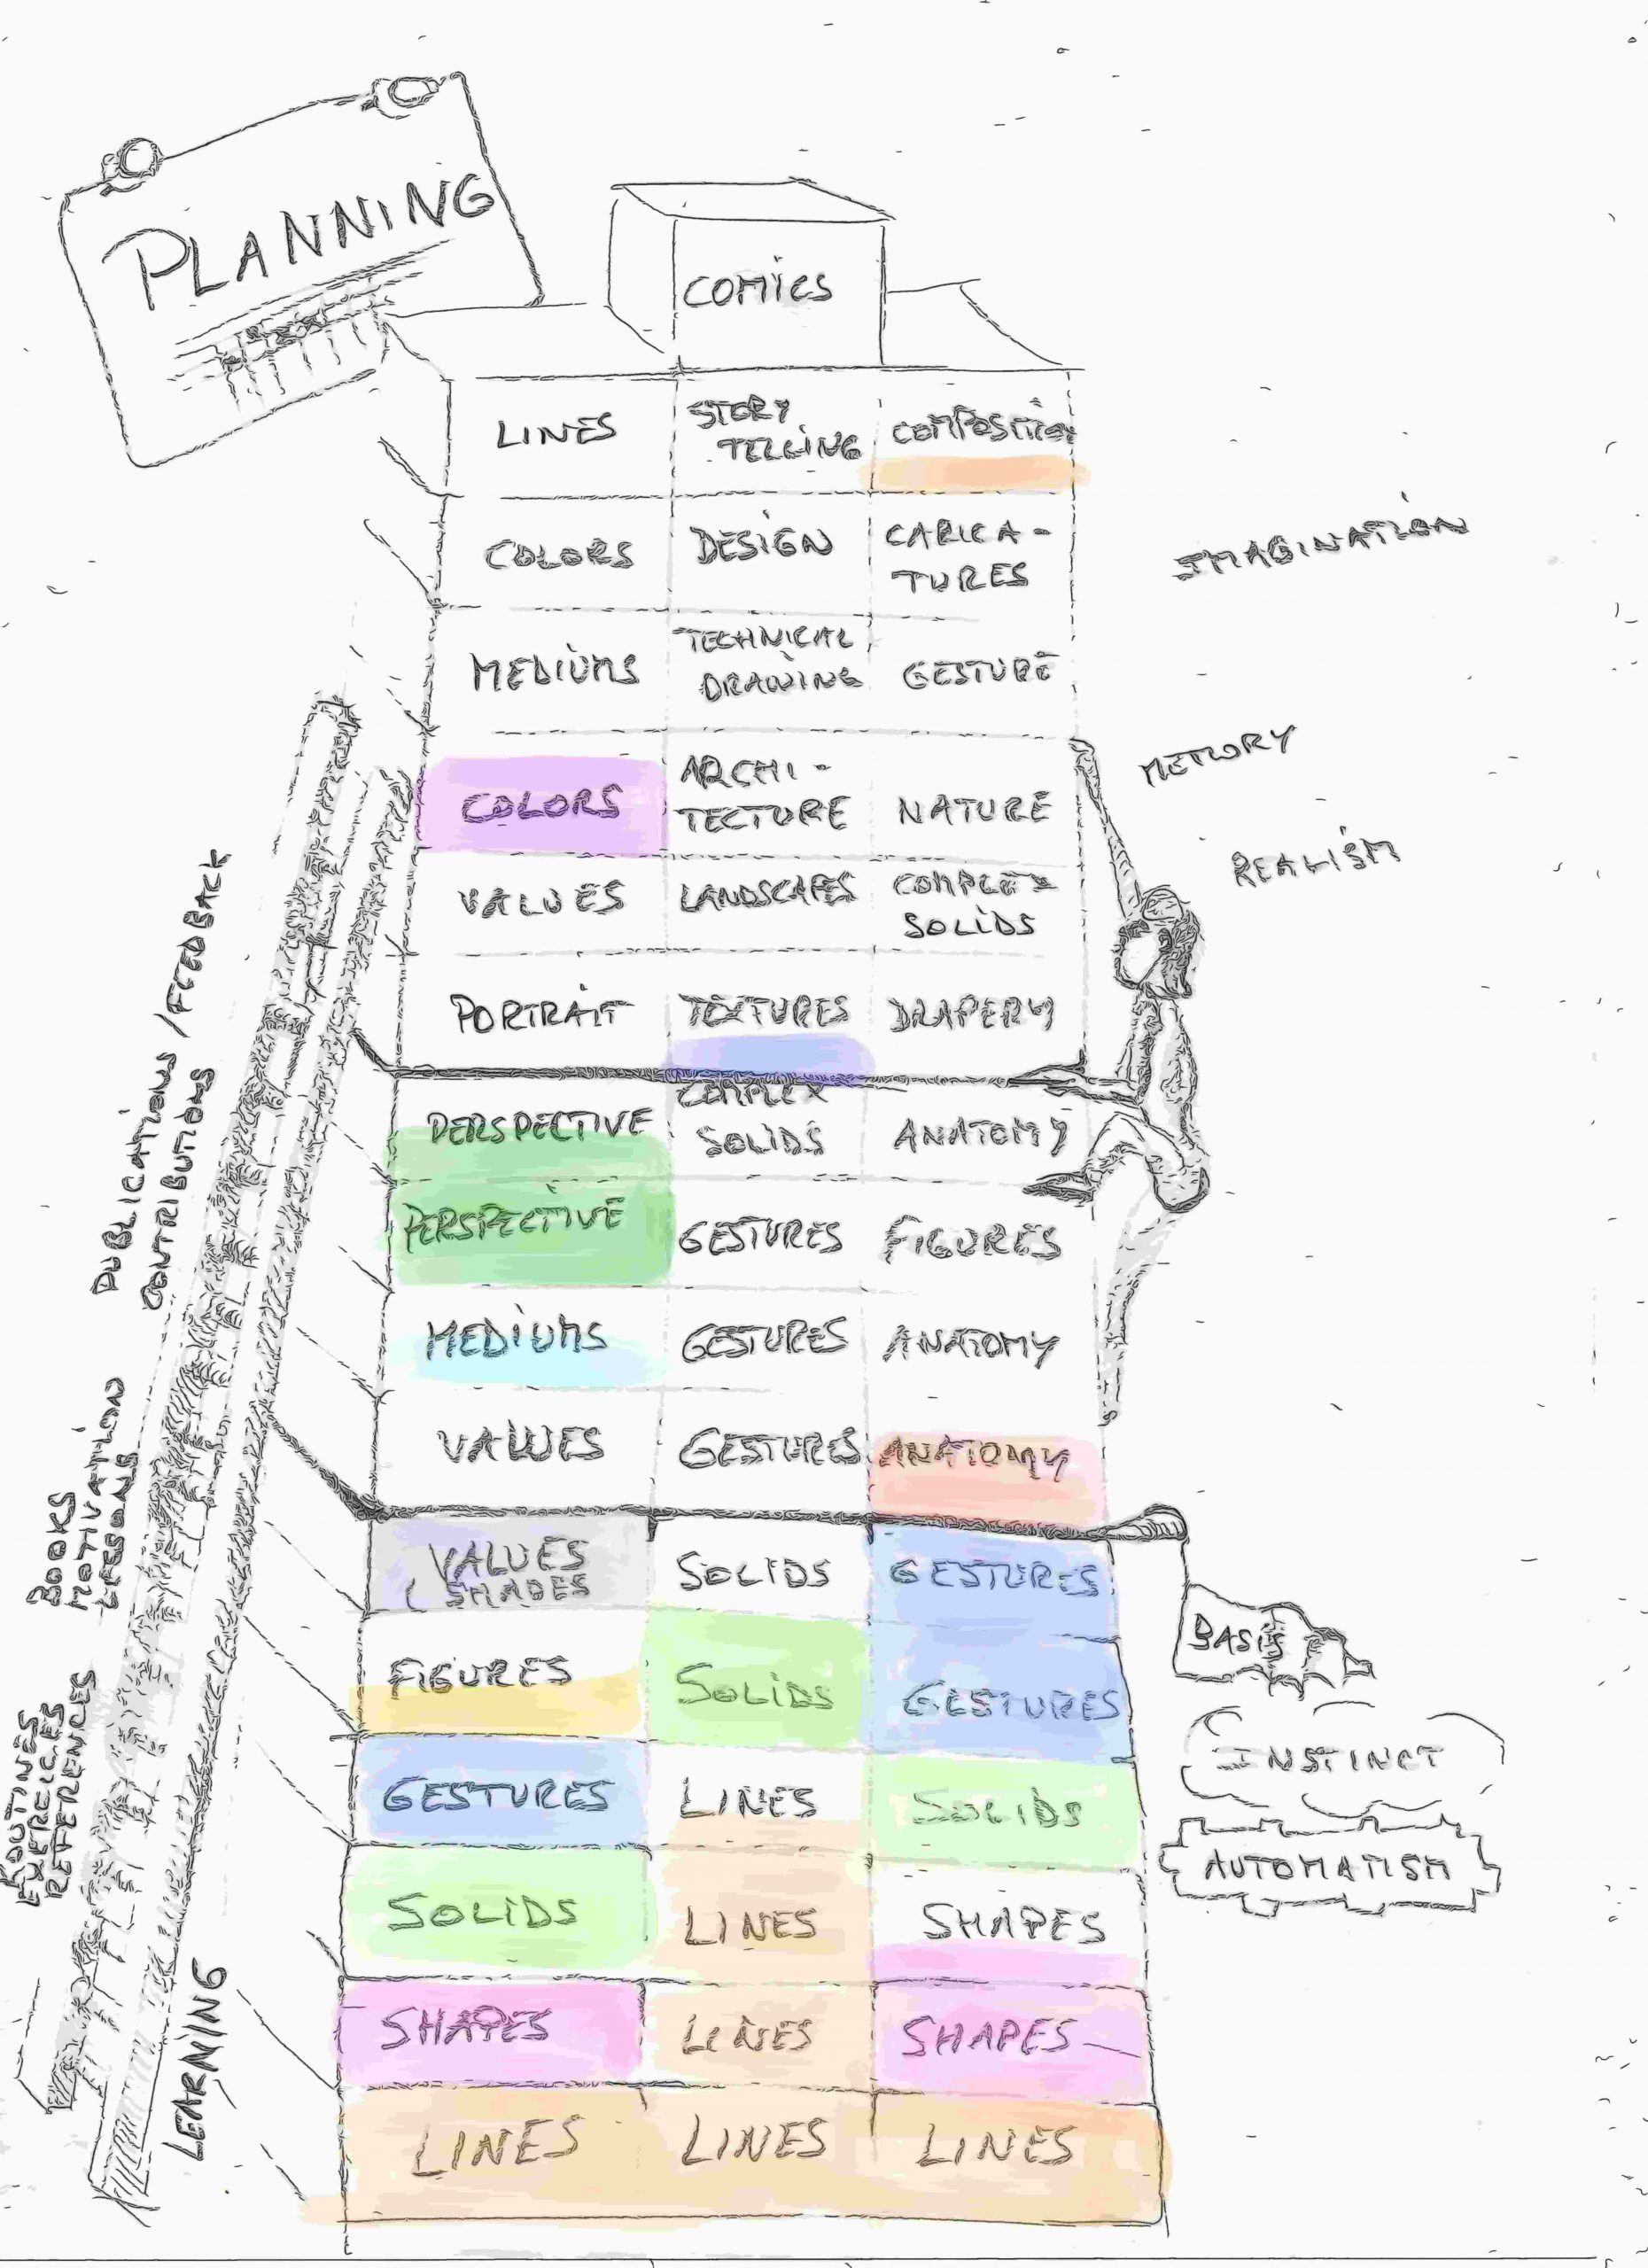 PLANNING
COMICS
LINES
STORY
TELLING
COMPOSITION
COLORS
DESIGN
CARICA-
TURES
MEDIUMS
TECHNICAL
DRAWING
GESTURE
COLORS
ARCHI-
TECTURE
NATURE
VALUES
LANDSCAPES
COMPLEX
SOLIDS
PORTRAIT
TEXTURES
DRAPERY
PERSPECTIVE
COMPLEX
SOLIDS
ANATOMY
PERSPECTIVE
GESTURES
FIGURES
MEDIUMS
GESTURES
ANATOMY
VALUES
GESTURES
ANATOMY
VALUES
( SHADES
SOLIDS
GESTURES
FIGURES
SOLIDS
GESTURES
GESTURES
LINES
SOLIDS
SOLIDS
LINES
SHAPES
SHAPES
LINES
SHAPES
LINES
LINES
LINES
IMAGINATION
MEMORY
REALISM
BASIS
INSTINCT
AUTOMATISM
PUBLICATIONS / FEEDBACK
CONTRIBUTIONS
BOOKS
MOTIVATION
LESSONS
ROUTINES
EXERCICES
REFERENCES
LEARNING